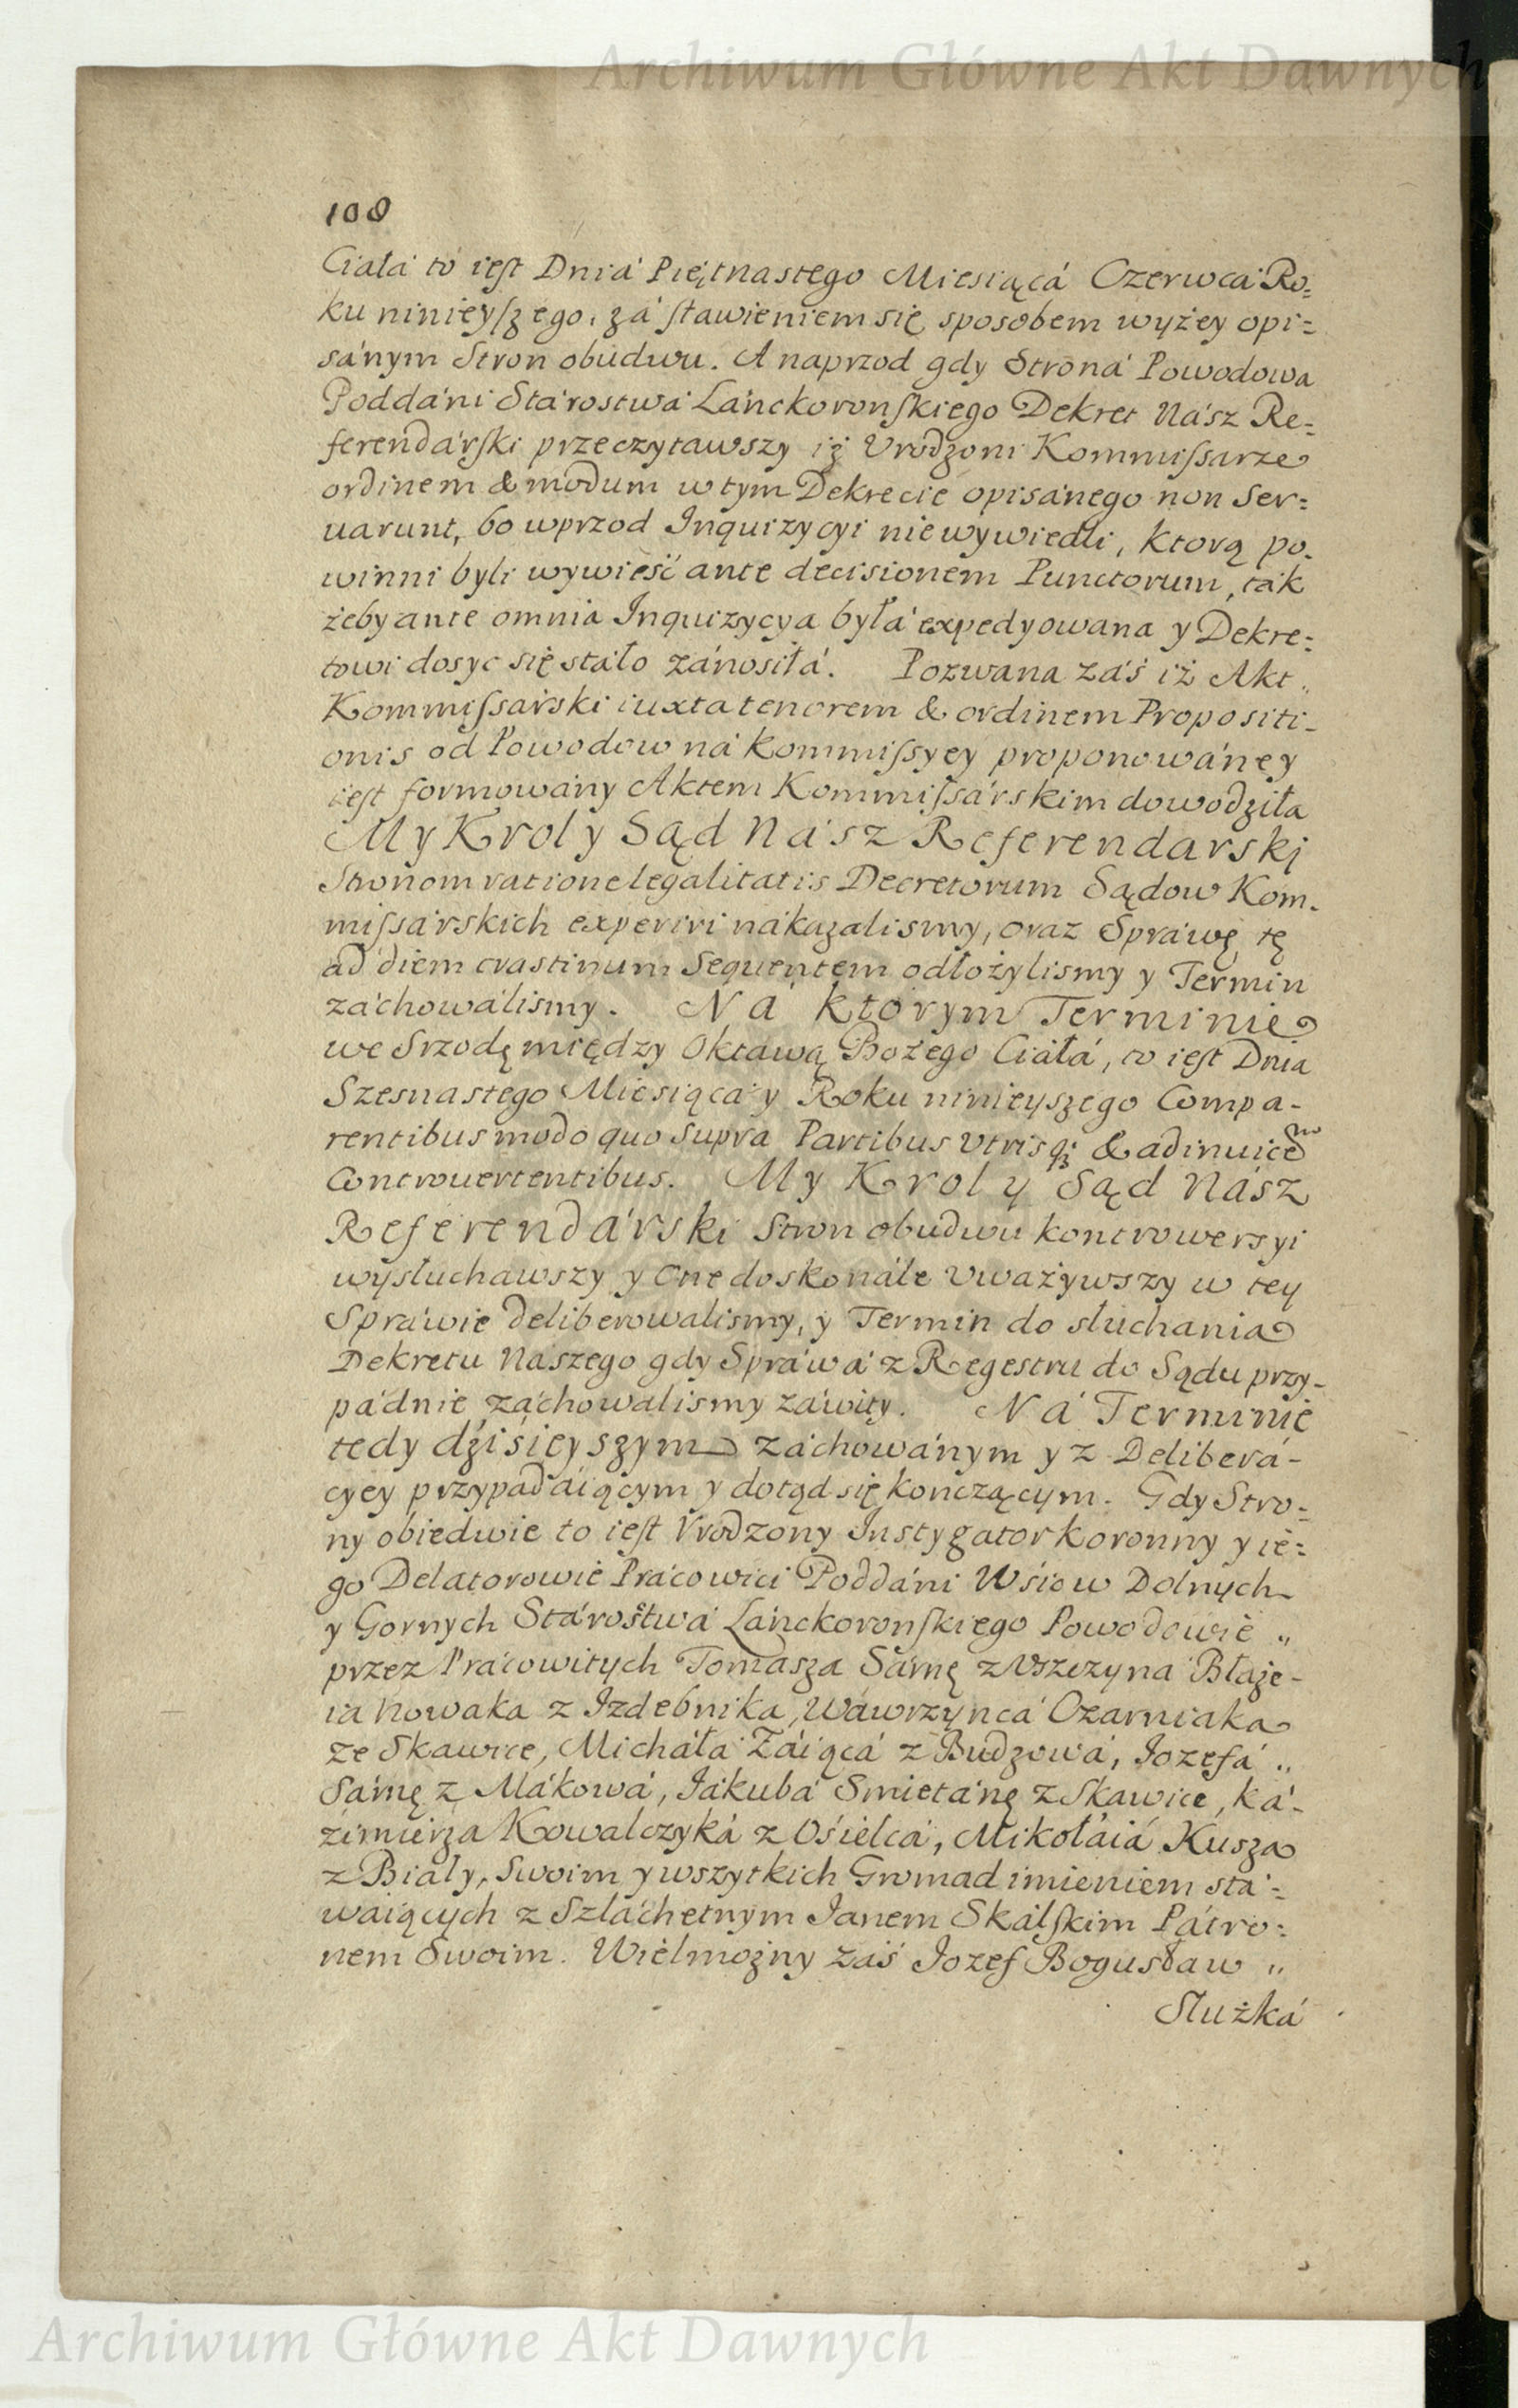 Archiwum Główne Akt Dawnych
108
Ciałá to iest Dniá Piętnastego Miesiącá Czerwcá Ro=
ku ninieyszego, zá stawieniem się sposobem wyżey opi=
sánym Stron obudwu. A naprzod gdy Stroná Powodowa
Poddáni Stárostwá Lánckoronskiego Dekret Nász Re=
ferendárski przeczytawszy iż Vrodzoni Kommissarze
ordinem & modum w tym Dekrecie opisánego non Ser=
uarunt, bo wprzod Inquizycyi niewywiedli, ktorą po-
winni byli wywieść ante decisionem Punctorum, ták
żeby ante omnia Inquizycya byłá expedyowana y Dekre=
towi dosyc się stało zánosiłá. Pozwana záś iż Akt „
Kommissárski iuxta tenorem & ordinem Propositi-
onis od Powodow ná Kommissyey proponowáney
iest formowány Aktem Kommissárskim dowodziła
My Krol y Sąd Nász Referendarski
Stronom ratione legalitatis Decretorum Sądow Kom-
missárskich experiri nákazalismy, oraz Spráwę tę
ad diem crastinum Sequentem odłożylismy y Termin
záchowálismy. Ná ktorym Terminie
we Srzodę między Oktawą Bożego Ciáłá, to iest Dnia
Szesnastego Miesiącá y Roku ninieyszego Compa-
rentibus modo quo supra Partibus vtrisqꝫ & adinuicē
Controuertentibus. My Krol y Sąd Nász
Referendárski Stron obudwu kontrowersyi
wysłuchawszy y one doskonále vważywszy w tey
Spráwie deliberowalismy, y Termin do słuchania
Dekretu Nászego gdy Spráwá z Regestru do Sądu przy-
pádnie záchowalismy záwity. Ná Terminie
tedy dzisieyszym záchowánym y z Deliberá-
cyey przypadáiącym y dotąd się kończącym. Gdy Stro=
ny obiedwie to iest Vrodzony Instygator Koronny y ie=
go Delatorowie Prácowici Poddáni Wśiow Dolnych
y Gornych Stárostwá Lánckoronskiego Powodowie „
przez Prácowitych Tomasza Sárnę z Vszczyna Błaże-
ia Nowaka z Izdebnika, Wáwrzyńcá Ozarniaka
ze Skawice, Micháła Záiącá z Budzowá, Iozefá „
Sárnę z Mákowá, Iákubá Smietánę z Skawice, Ká-
źimierza Kowalczyká z Ośielcá, Mikołáiá Kusza
z Biały, Swoim y wszytkich Gromad imieniem stá-
waiących z Szláchetnym Ianem Skálskim Pátro=
nem Swoim. Wielmożny záś Iozef Bogusław „
Służká
Archiwum Główne Akt Dawnych